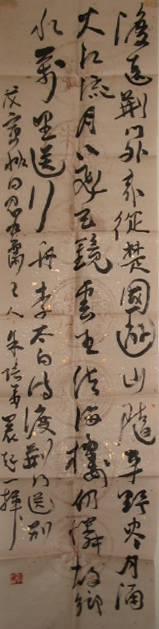 渡遠荊門外來從楚國遊山隨平野盡月湧
大江流月下飛天鏡雲生結海樓仍憐故鄉
水萬里送行舟李太白詩渡荊門送別
戊寅秋日 人朱培 晨起一揮